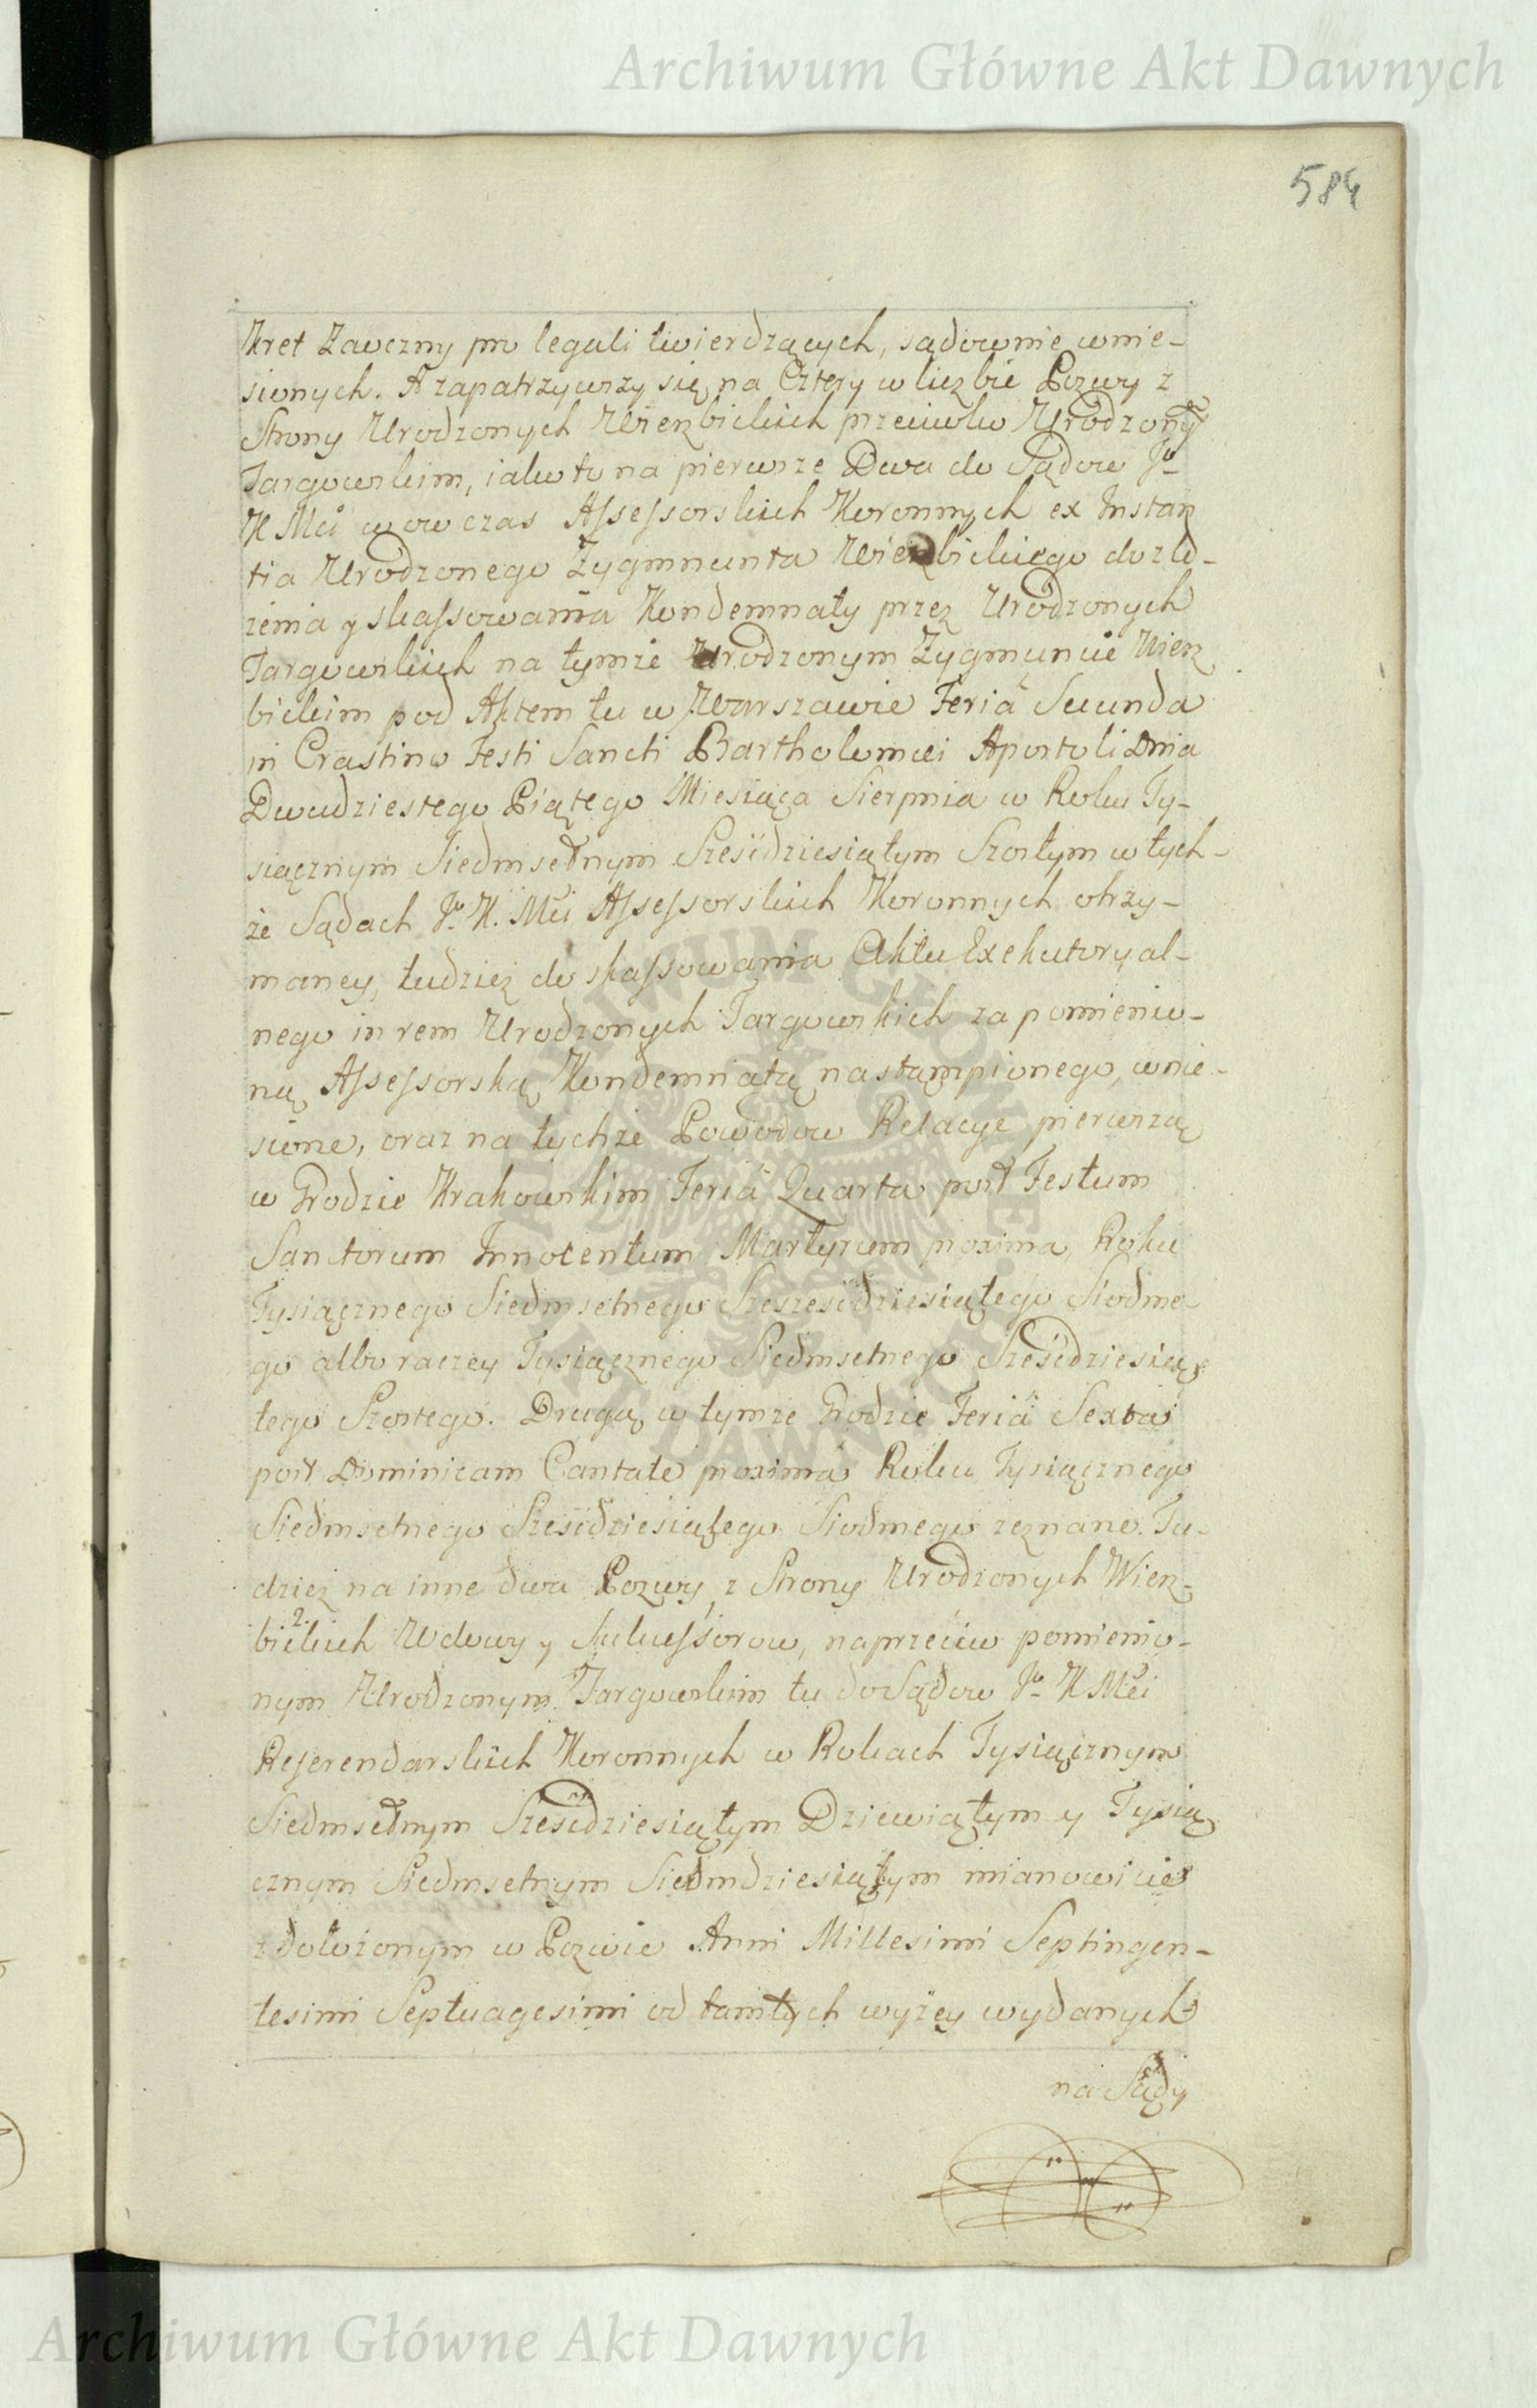 Archiwum Główne Akt Dawnych
584
kret Zaoczny pro legali twierdzących, sądownie wnie-
sionych. A zapatrzywszy się na Cztery w liczbie Pozwy z
Strony Urodzonych Wierzbickich przeciwko Urodzonỹ
Targowskim, iako to na pierwsze Dwa do Sądow Jo
K Mci wowczas Assessorskich Koronnych ex Instan
tia Urodzonego Zygmunta Wierzbickiego do zło-
żenia y skassowania Kondemnaty przez Urodzonych
Targowskich na tymże Urodzonym Zygmuncie Wierz
bickim pod Aktem tu w Warszawie Feriâ Secunda
in Crastino Festi Sancti Bartholomei Apostoli Dnia
Dwudziestego Piątego Miesiąca Sierpnia w Roku Ty-
siącznym Siedmsetnym Szesćdziesiątym Szostym w tych-
że Sądach Jo K. Mci Assessorskich Koronnych otrzy-
maney, tudzież do skassowania Aktu Exekutoryal-
nego in rem Urodzonych Targowskich za pomienio-
ną Assessorską Kondemnatą nastąmpionego, wnie-
sione, oraz na tychże Powodow Relacye pierwszą
w Grodzie Krakowskim Feriâ Quarta post Festum
Sanctorum Innocentum Martyrum proxima, Roku
Tysiącznego Siedmsetnego Szeszesćdziesiątego Siodme-
go albo raczey Tysiącznego Siedmsetnego Szesćdziesią-
tego Szostego. Drugą w tymże Grodzie Feriâ Sexta
post Dominicam Cantate proximâ Roku Tysiącznego
Siedmsetnego Szesćdziesiątego Siodmego zeznane. Tu-
dzież na inne dwa Pozwy, z Strony Urodzonych Wierz-
bickich 2. Wdowy y Sukcessorow, naprzeciw pomienio-
nym Urodzonym Targowskim tu do Sądow Jo K Mci
Referendarskich Koronnych w Rokach Tysiącznym
Siedmsetnym Szesćdziesiątym Dziewiątym y Tysią
cznym Siedmsetnym Siedmdziesiątym mianowicie
z dołożonym w Pozwie Anni Millesimi Septingen-
tesimi Septuagesimi od tamtych wyżey wydanych
na Sądy
Archiwum Główne Akt Dawnych